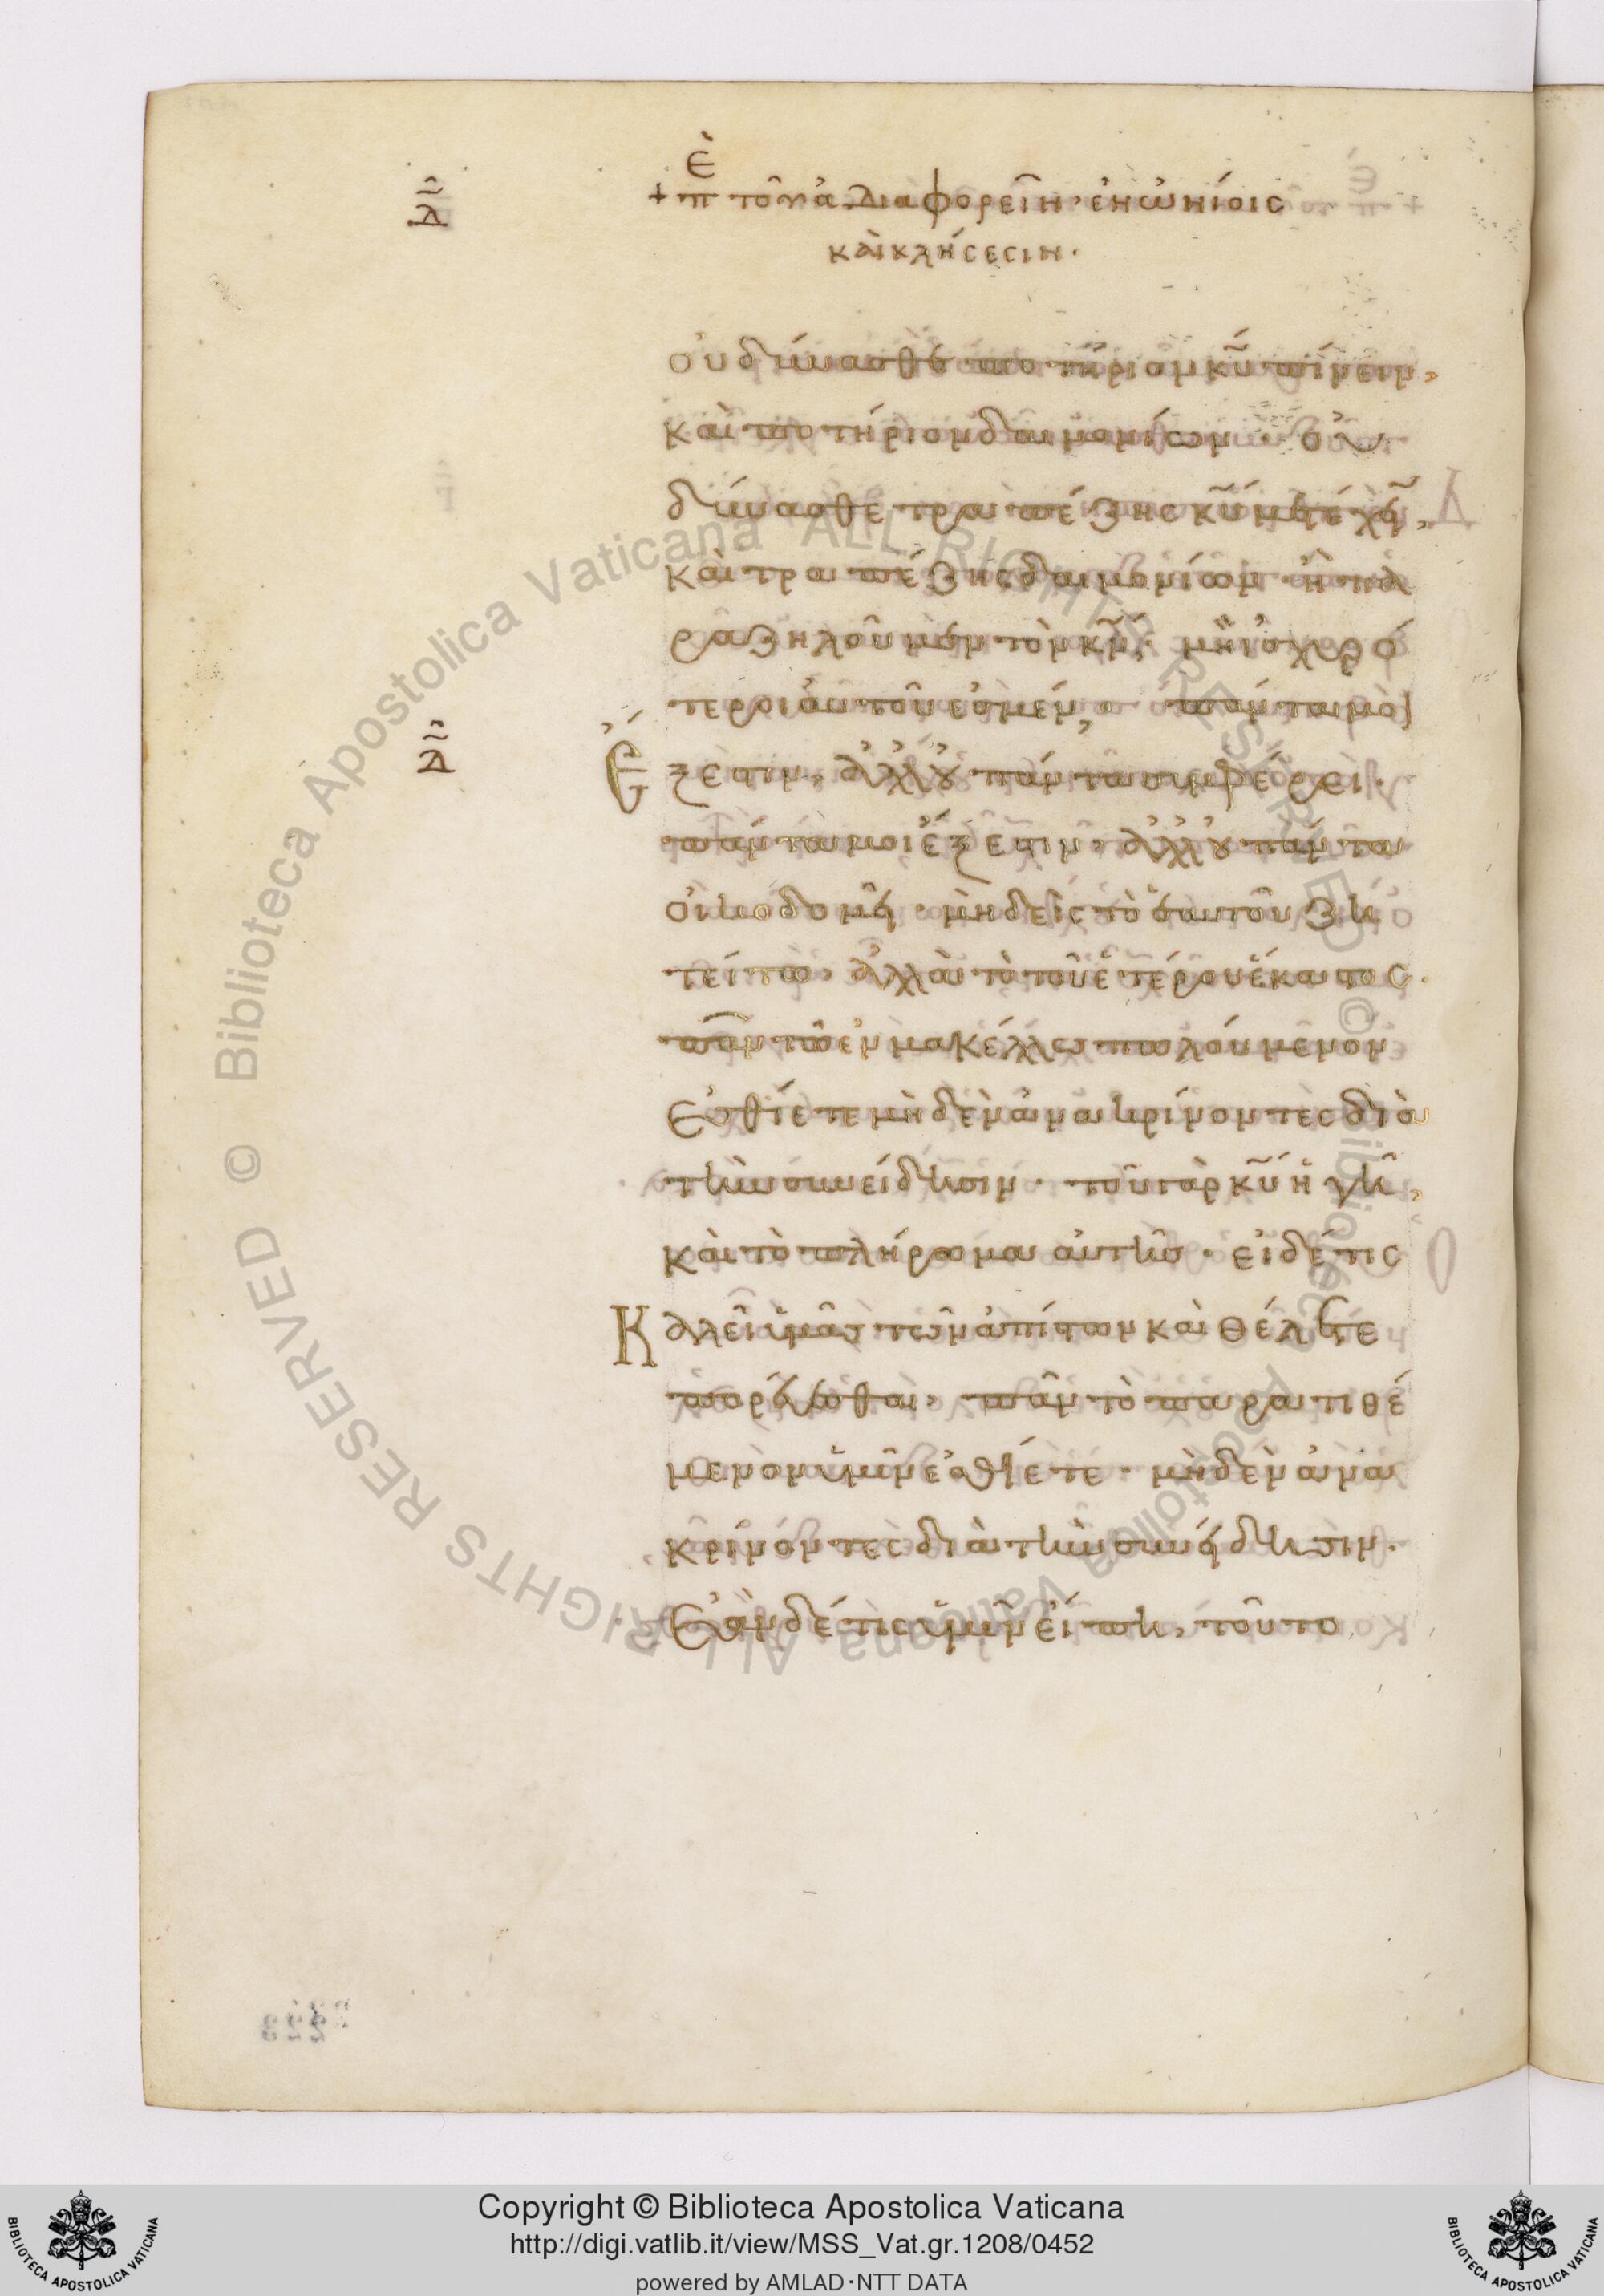 Δ
Ἐ
+ π τοῦ μὴ ἀδιαφορεῖν· ἐν ὠνίοις
καὶ κλήσεσιν·
οὐ δύνασθε ποτήριον κ̅υ̅ πίνειν,
καὶ ποτήριον δαιμονίων· οὐ
δύνασθε τραπέζης κ̅υ̅ μετέχειν,
καὶ τραπέζης δαιμονίων· ἢ πα
ραζηλοῦμεν τὸν κ̅ν̅; μὴ ἰσχυρό
τεροι αὐτοῦ ἐσμέν; πάντα μοι
Δ
Ἔξεστιν, ἀλλ' οὐ πάντα συμφέρει·
πάντα μοι ἔξεστιν, ἀλλ' οὐ πάντα
οἰκοδομεῖ· μηδεὶς τὸ ἑαυτοῦ ζη
τείτω, ἀλλὰ τὸ τοῦ ἑτέρου ἕκαστος·
πᾶν τὸ ἐν μακέλλω πωλούμενον
ἐσθίετε μηδὲν ἀνακρίνοντες διὰ
τὴν συνείδησιν· τοῦ γὰρ κ̅υ̅ ἡ γῆ,
καὶ τὸ πλήρωμα αὐτῆς· εἰ δέ τις
Καλεῖ ὑμᾶς τῶν ἀπίστων καὶ θέλετε
πορεύεσθαι, πᾶν τὸ παρατιθέ
μενον ὑμῖν ἐσθίετε· μηδὲν ἀνα
κρίνοντες διὰ τὴν συνείδησιν·
Ἐὰν δέ τις ὑμῖν εἴπη, τοῦτο
Copyright © Biblioteca Apostolica Vaticana
http://digi.vatlib.it/view/MSS_Vat.gr.1208/0452
powered by AMLAD·NTT DATA
BIBLIOTECA APOSTOLICA VATICANA
BIBLIOTECA APOSTOLICA VATICANA
© Biblioteca Apostolica Vaticana ALL RIGHTS RESERVED © Biblioteca Apostolica Vaticana ALL RIGHTS RESERVED